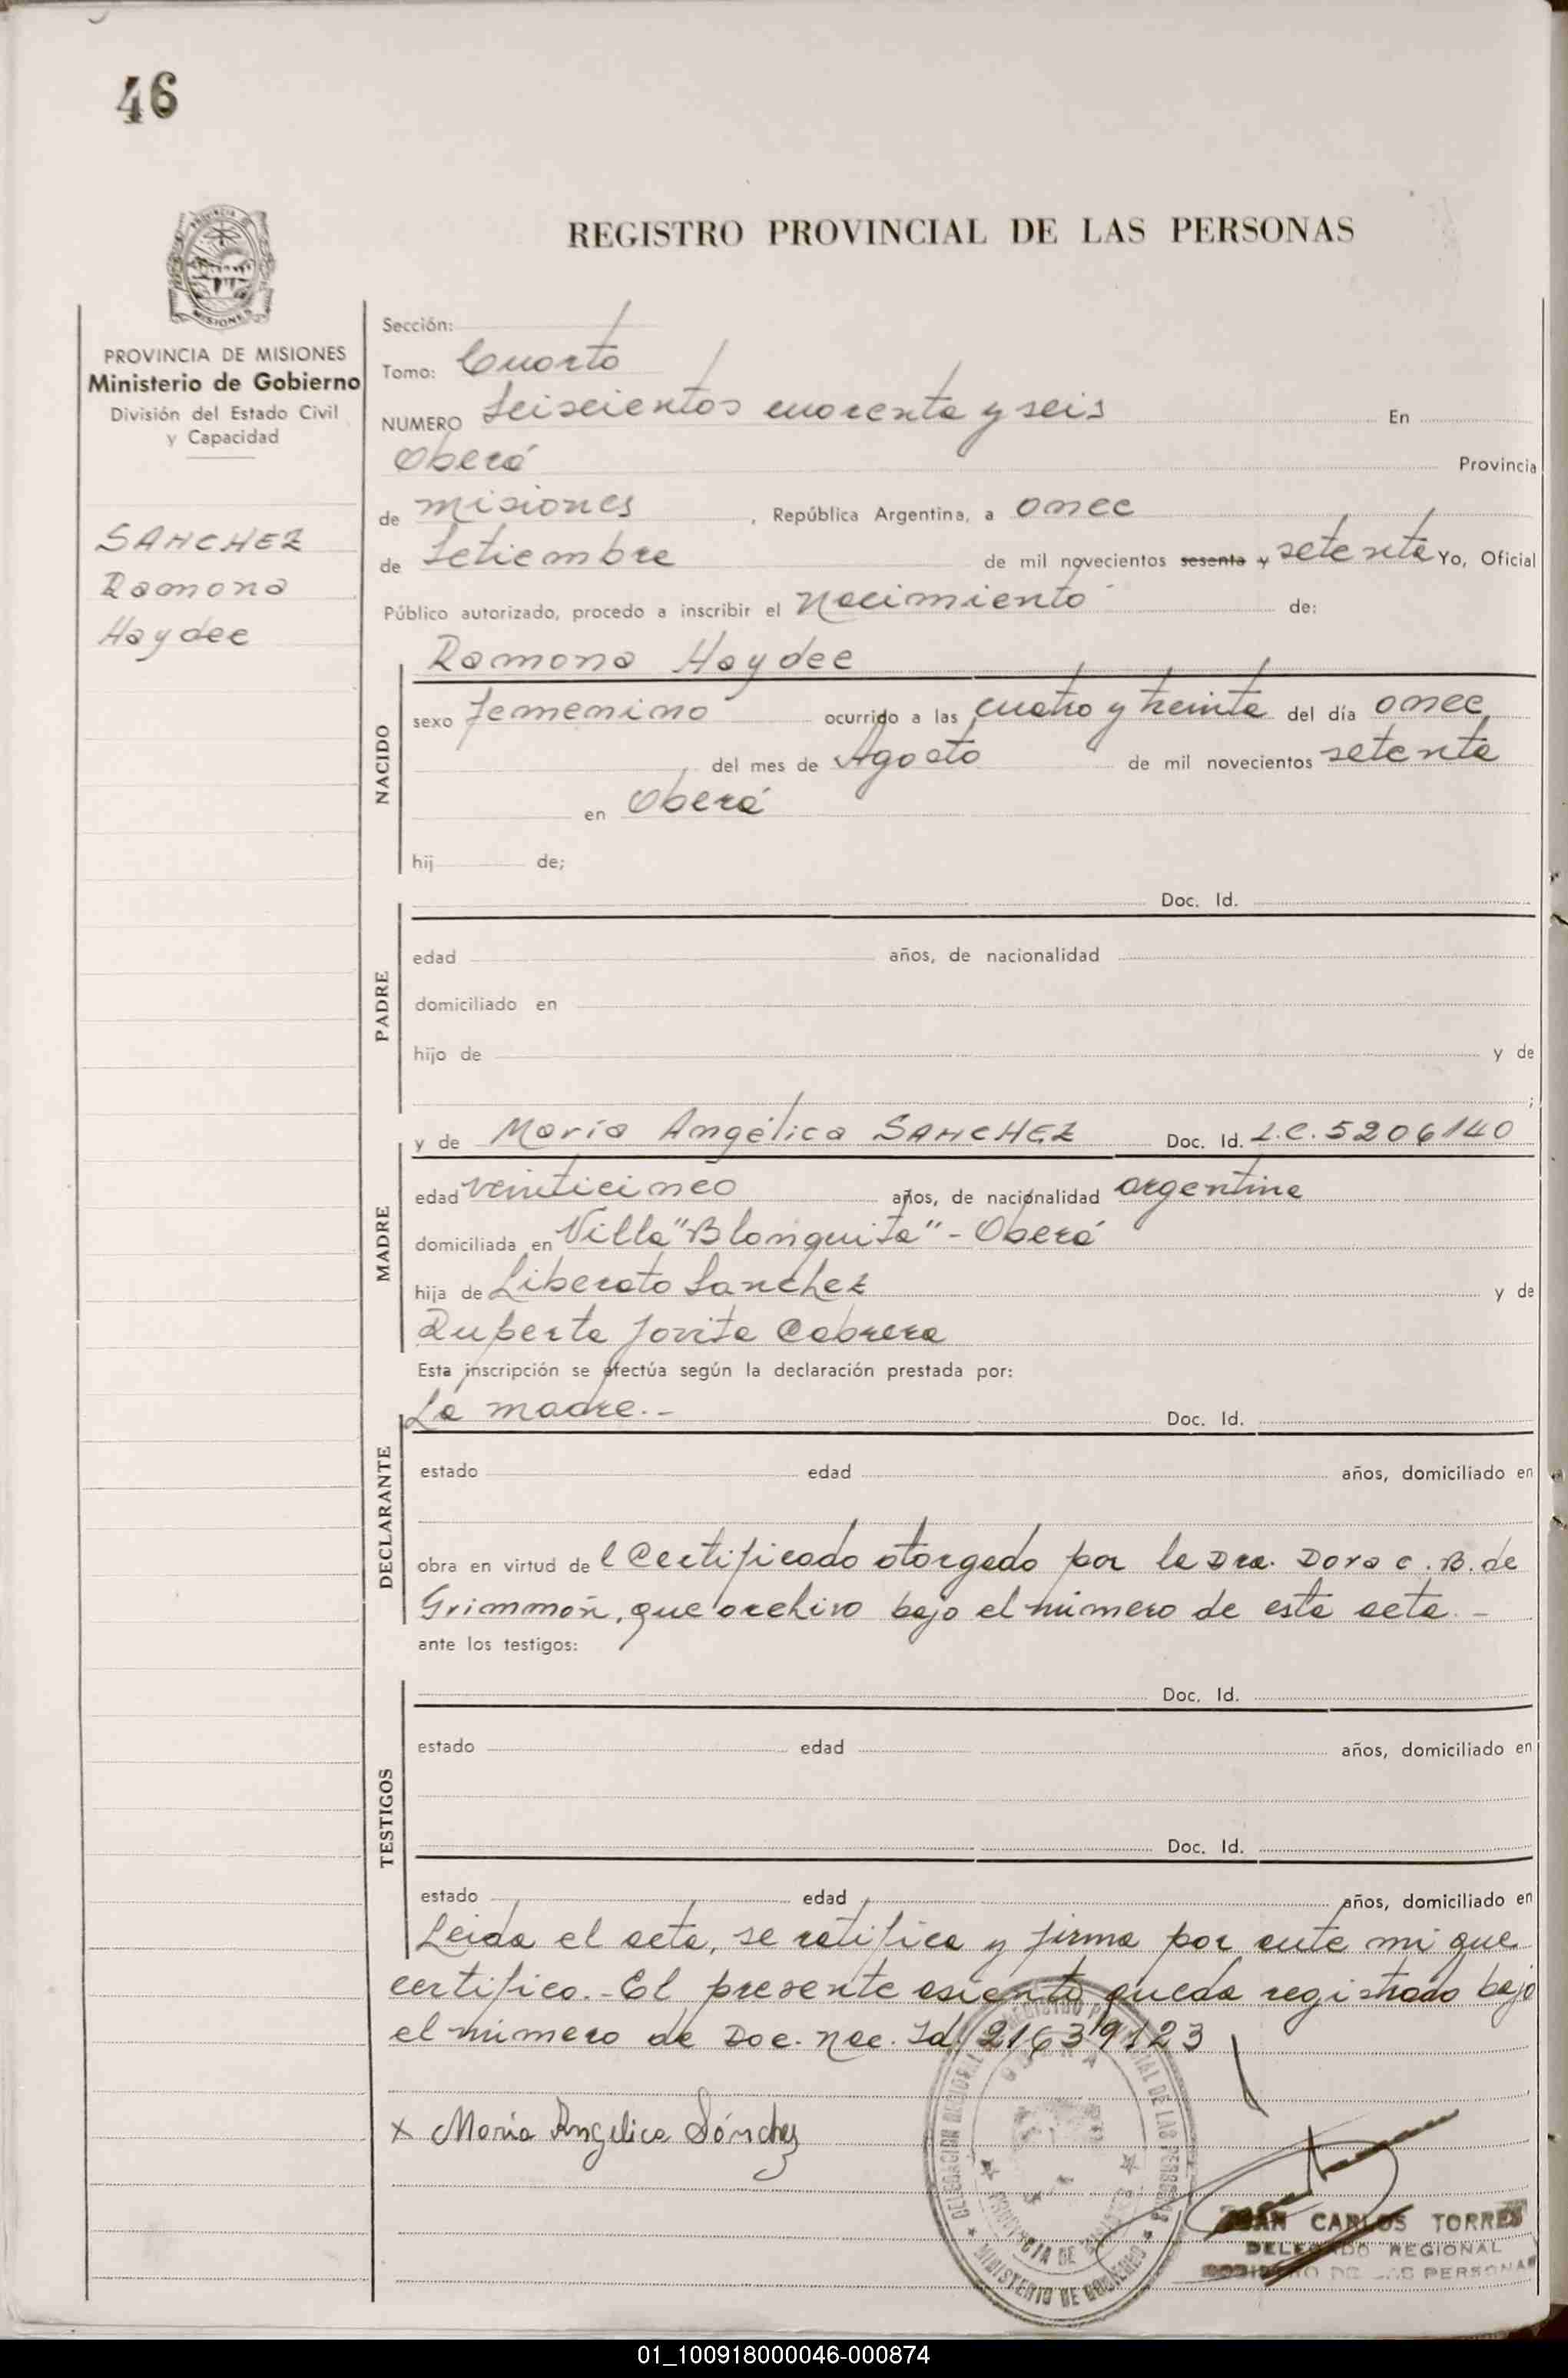 46
REGISTRO PROVINCIAL DE LAS PERSONAS
MISIONES
PROVINCIA DE MISIONES
Ministerio de Gobierno
División del Estado Civil
y Capacidad
SANCHEZ
Ramona
Haydee
Sección:
Tomo: Cuarto
NUMERO Seiscientos cuarenta y seis En
Oberá Provincia
de misiones, República Argentina, a once
de Setiembre de mil novecientos sesenta y setenta Yo, Oficial
Público autorizado, procedo a inscribir el nacimiento de:
Ramona Haydee
NACIDO
sexo femenino ocurrido a las cuatro y treinta del día once
del mes de Agosto de mil novecientos setenta
en Oberá
hij de;
Doc. Id.
PADRE
edad años, de nacionalidad
domiciliado en
hijo de y de
;
y de María Angélica SANCHEZ Doc. Id. L.C. 5206140
MADRE
edad veinticinco años, de nacionalidad argentina
domiciliada en Villa "Blanquita" - Oberá
hija de Liberato Sanchez y de
Ruperta Jovita Cabrera
Esta inscripción se efectúa según la declaración prestada por:
La madre.-
Doc. Id.
DECLARANTE
estado edad años, domiciliado en
obra en virtud de l Certificado otorgado por la Dra. Dora C. B. de
Grimmon, que archivo bajo el número de esta acta.-
ante los testigos:
Doc. Id.
TESTIGOS
estado edad años, domiciliado en
Doc. Id.
estado edad años, domiciliado en
Leida el acta, se ratifica y firma por ante mi que
certifico.- El presente asiento queda registrado bajo
el número de Doc. Nac. Id. 21639123
x María Angelica Sánchez
DELEGACION REGIONAL
PROVINCIA DE MISIONES
MINISTERIO DE GOBIERNO
JUAN CARLOS TORRES
DELEGADO REGIONAL
DE LAS PERSONAS
01_100918000046-000874